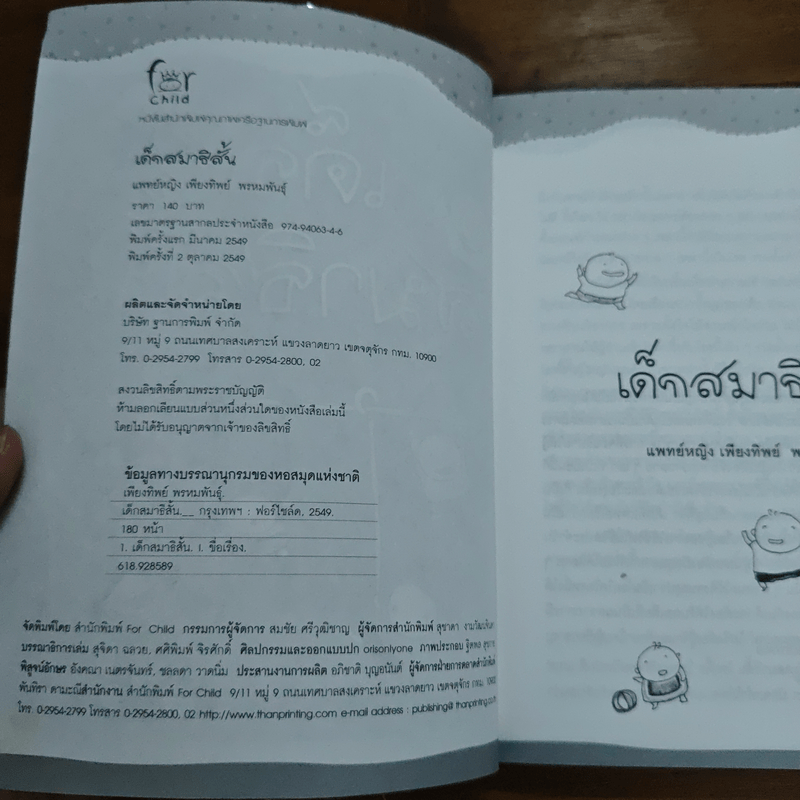 for
Child
เด็กสมาธิสั้น
แพทย์หญิง เพียงทิพย์ พรหมพันธุ์
ราคา 140 บาท
เลขมาตรฐานสากลประจำหนังสือ 974-94063-4-6
พิมพ์ครั้งแรก มีนาคม 2549
พิมพ์ครั้งที่ 2 ตุลาคม 2549
ผลิตและจัดจำหน่ายโดย
บริษัท ฐานการพิมพ์ จำกัด
9/11 หมู่ 9 ถนนเทศบาลสงเคราะห์ แขวงลาดยาว เขตจตุจักร กทม. 10900
โทร. 0-2954-2799 โทรสาร 0-2954-2800, 02
สงวนลิขสิทธิ์ตามพระราชบัญญัติ
ห้ามลอกเลียนแบบส่วนหนึ่งส่วนใดของหนังสือเล่มนี้
โดยไม่ได้รับอนุญาตจากเจ้าของลิขสิทธิ์
ข้อมูลทางบรรณานุกรมของหอสมุดแห่งชาติ
เพียงทิพย์ พรหมพันธุ์.
เด็กสมาธิสั้น.__ กรุงเทพฯ : ฟอร์ไชล์ด, 2549.
180 หน้า
1. เด็กสมาธิสั้น. I. ชื่อเรื่อง.
618.928589
จัดพิมพ์โดย สำนักพิมพ์ For Child กรรมการผู้จัดการ สมชัย ศรีวุฒิชาญ ผู้จัดการสำนักพิมพ์ สุชาดา
บรรณาธิการเล่ม สุจิดา ฉลวย, ศศิพิมพ์ จิรศักดิ์ ศิลปกรรมและออกแบบปก orisonlyone ภาพประกอบ
พิสูจน์อักษร อังคณา เนตรจันทร์, ชลลดา วาดนิ่ม ประสานงานการผลิต อภิชาติ บุญอนันต์ ผู้จัดการฝ่ายการตลาดสำนักพิมพ์
พันทิรา ดามะณีสำนักงาน สำนักพิมพ์ For Child 9/11 หมู่ 9 ถนนเทศบาลสงเคราะห์ แขวงลาดยาว เขตจตุจักร กทม. 10900
โทร. 0-2954-2799 โทรสาร 0-2954-2800, 02 http://www.thanprinting.com e-mail address : publishing@thanprinting.co
เด็กสมาธิ
แพทย์หญิง เพียงทิพย์ พ